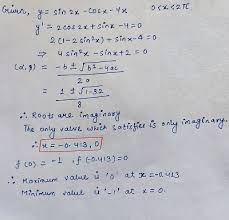 Given, y = sin 2x - cosx - 4x 0<x<2π
y' = 2cos2x + sinx - 4 = 0
2(1-2sin²x) + sinx - 4 = 0
⇒ 4sin²x - sinx + 2 = 0
(α, β) = -b ± √b²-4ac / 2a
= 1 ± √1-32 / 8
∴ Roots are imaginary
The only value which satisfies is only imaginary.
∴ x = -0.413, 0
f(0) = -1 f(-0.413) = 0
∴ Maximum value is '0' at x = -0.413
Minimum value is '-1' at x = 0.